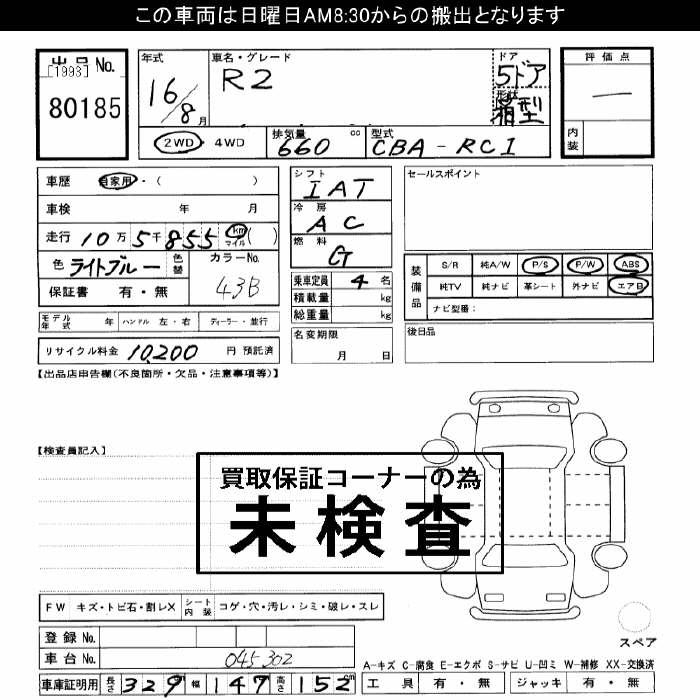 この車両は日曜日AM8:30からの搬出となります
出品No. [1993] 80185
年式 16/8月
車名・グレード R2
ドア 5ドア
形状 箱型
評価点 —
内装
2WD・4WD
排気量 660 cc
型式 CBA-RC1
車歴 自家用・( )
車検 年 月
走行 10万5千855 km マイル ( )
色 ライトブルー 色替 カラーNo. 43B
保証書 有・無
モデル年式 年 ハンドル 左・右 ディーラー・並行
リサイクル料金 10,200 円 預託済
シフト IAT
冷房 AC
燃料 G
乗車定員 4 名
積載量 kg
総重量 kg
名変期限 月 日
セールスポイント
装備品 S/R 純A/W P/S P/W ABS
純TV 純ナビ 革シート 外ナビ エアB
ナビ型番:
後日品
【出品店申告欄(不良箇所・欠品・注意事項等)】
【検査員記入】
買取保証コーナーの為
未検査
FW キズ・トビ石・割レX シート内装 コゲ・穴・汚レ・シミ・破レ・スレ
登録No.
車台No. 045302
車庫証明用 長さ 329 幅 147 高さ 152 cm
スペア
A-キズ C-腐食 E-エクボ S-サビ U-凹ミ W-補修 XX-交換済
工具 有・無 ジャッキ 有・無